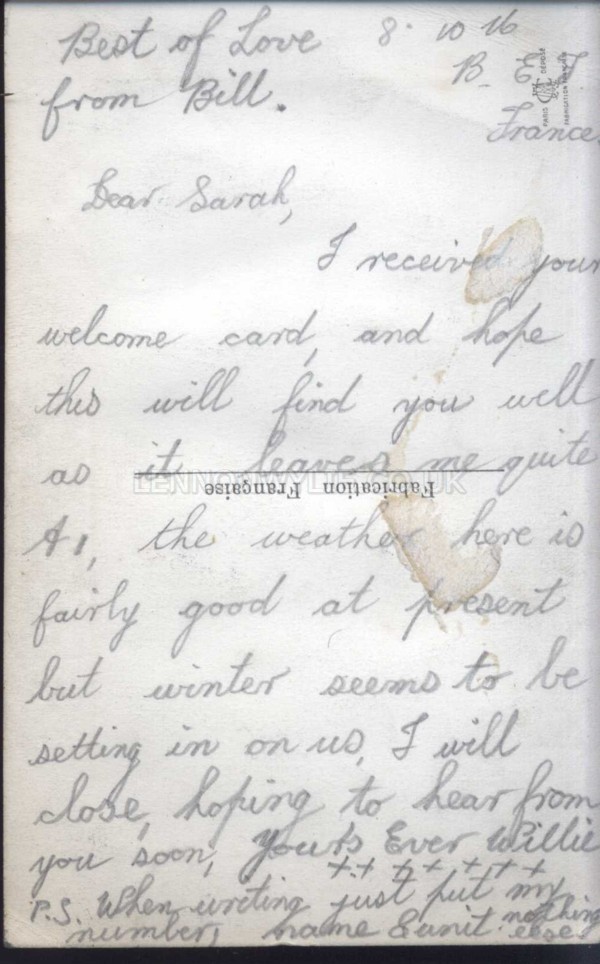 Best of Love
from Bill.
8. 10 16
B. E. F
France.
PARIS
DÉPOSÉ
FABRICATION FRANÇAISE
Dear Sarah,
I received your
welcome card, and hope
this will find you well
as it leaves me quite
LENNONWYLIE.CO.UK
Fabrication Française
A1, the weather here is
fairly good at present
but winter seems to be
setting in on us, I will
close, hoping to hear from
you soon, Yours Ever Willie
+ + + + + + +
P.S. When writing just put my
number, name & unit. nothing
else